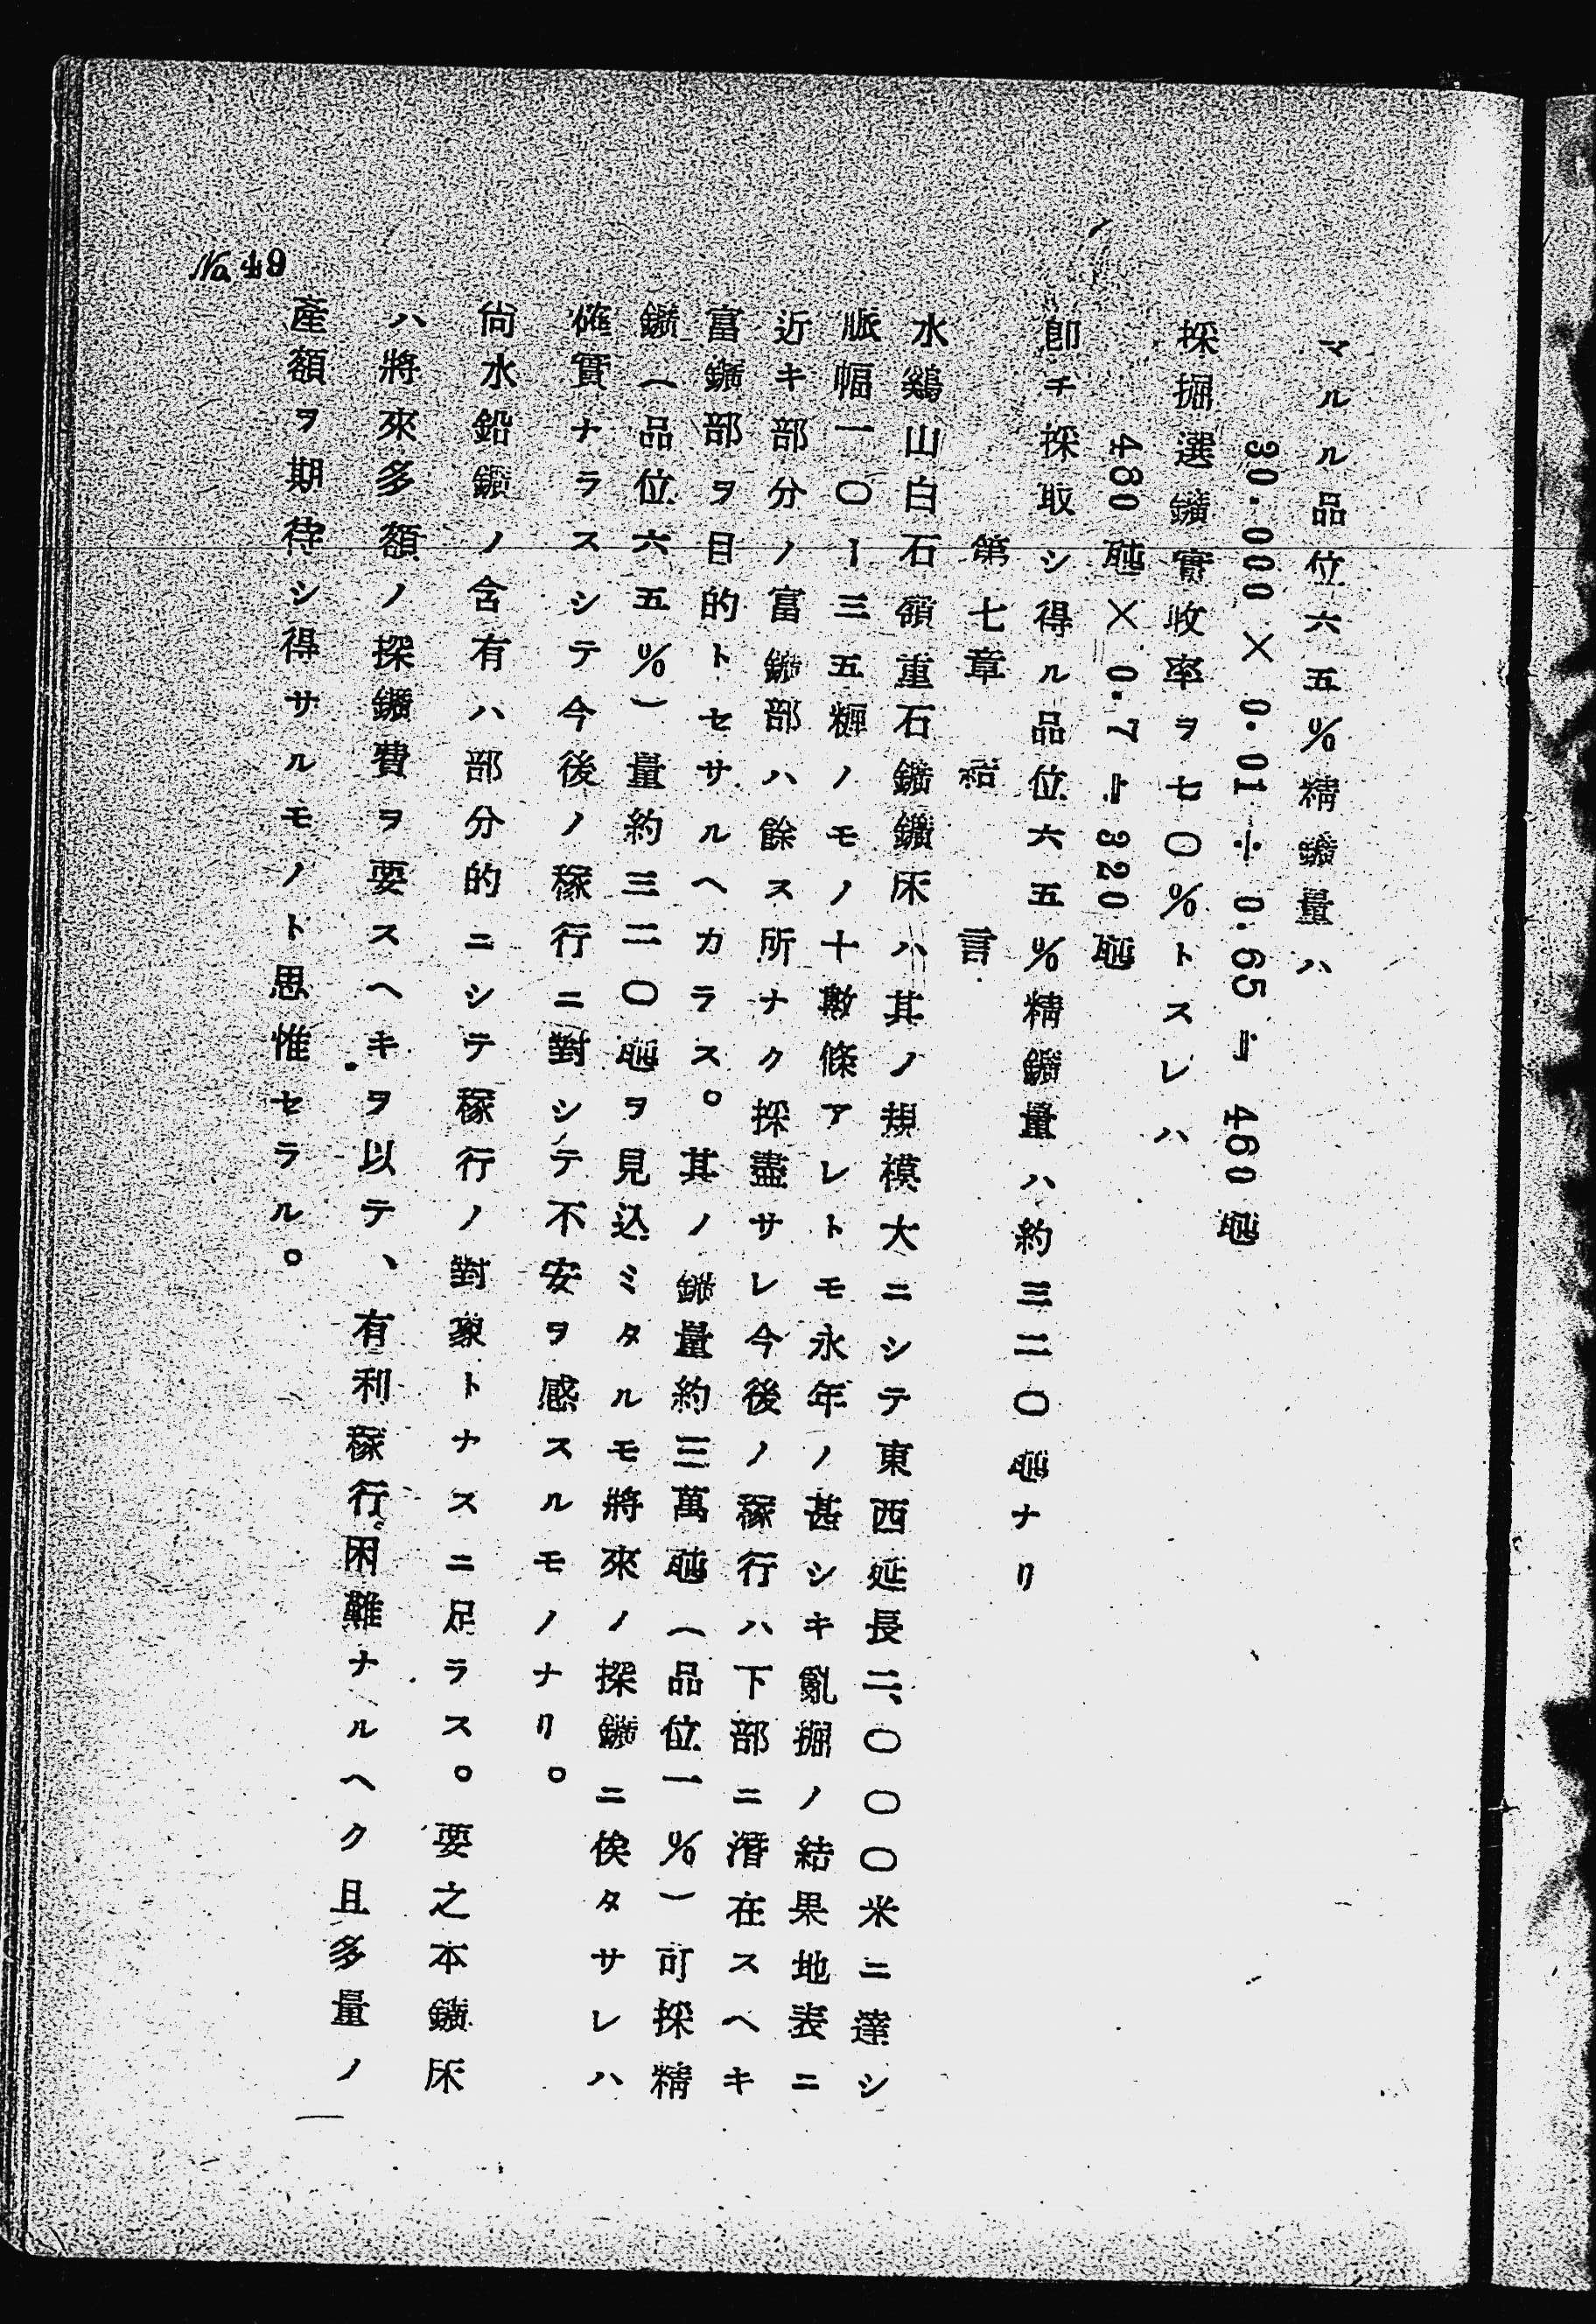 マルル品位六五％精鑛量ハ
30.000 × 0.01 ÷ 0.65 ≒ 460 瓲
採掘選鑛實收率ヲ七〇％トスレハ
460 瓲 × 0.7 ≒ 320 瓲
卽チ採取シ得ル品位六五％精鑛量ハ約三二〇瓲ナリ
第七章　結　言
水鷄山白石嶺重石鑛鑛床ハ其ノ規模大ニシテ東西延長二、〇〇〇米ニ達シ
脈幅一〇ー三五糎ノモノ十數條アレトモ永年ノ甚シキ亂掘ノ結果地表ニ
近キ部分ノ富鑛部ハ餘ス所ナク採盡サレ今後ノ稼行ハ下部ニ潛在スヘキ
富鑛部ヲ目的トセサルヘカラス。其ノ鑛量約三萬瓲（品位一％）可採精
鑛（品位六五％）量約三二〇瓲ヲ見込ミタルモ將來ノ探鑛ニ俟タサレハ
確實ナラスシテ今後ノ稼行ニ對シテ不安ヲ感スルモノナリ。
尙水鉛鑛ノ含有ハ部分的ニシテ稼行ノ對象トナスニ足ラス。要之本鑛床
ハ將來多額ノ探鑛費ヲ要スヘキヲ以テ、有利稼行困難ナルヘク且多量ノ
產額ヲ期待シ得サルモノト思惟セラル。
№ 49